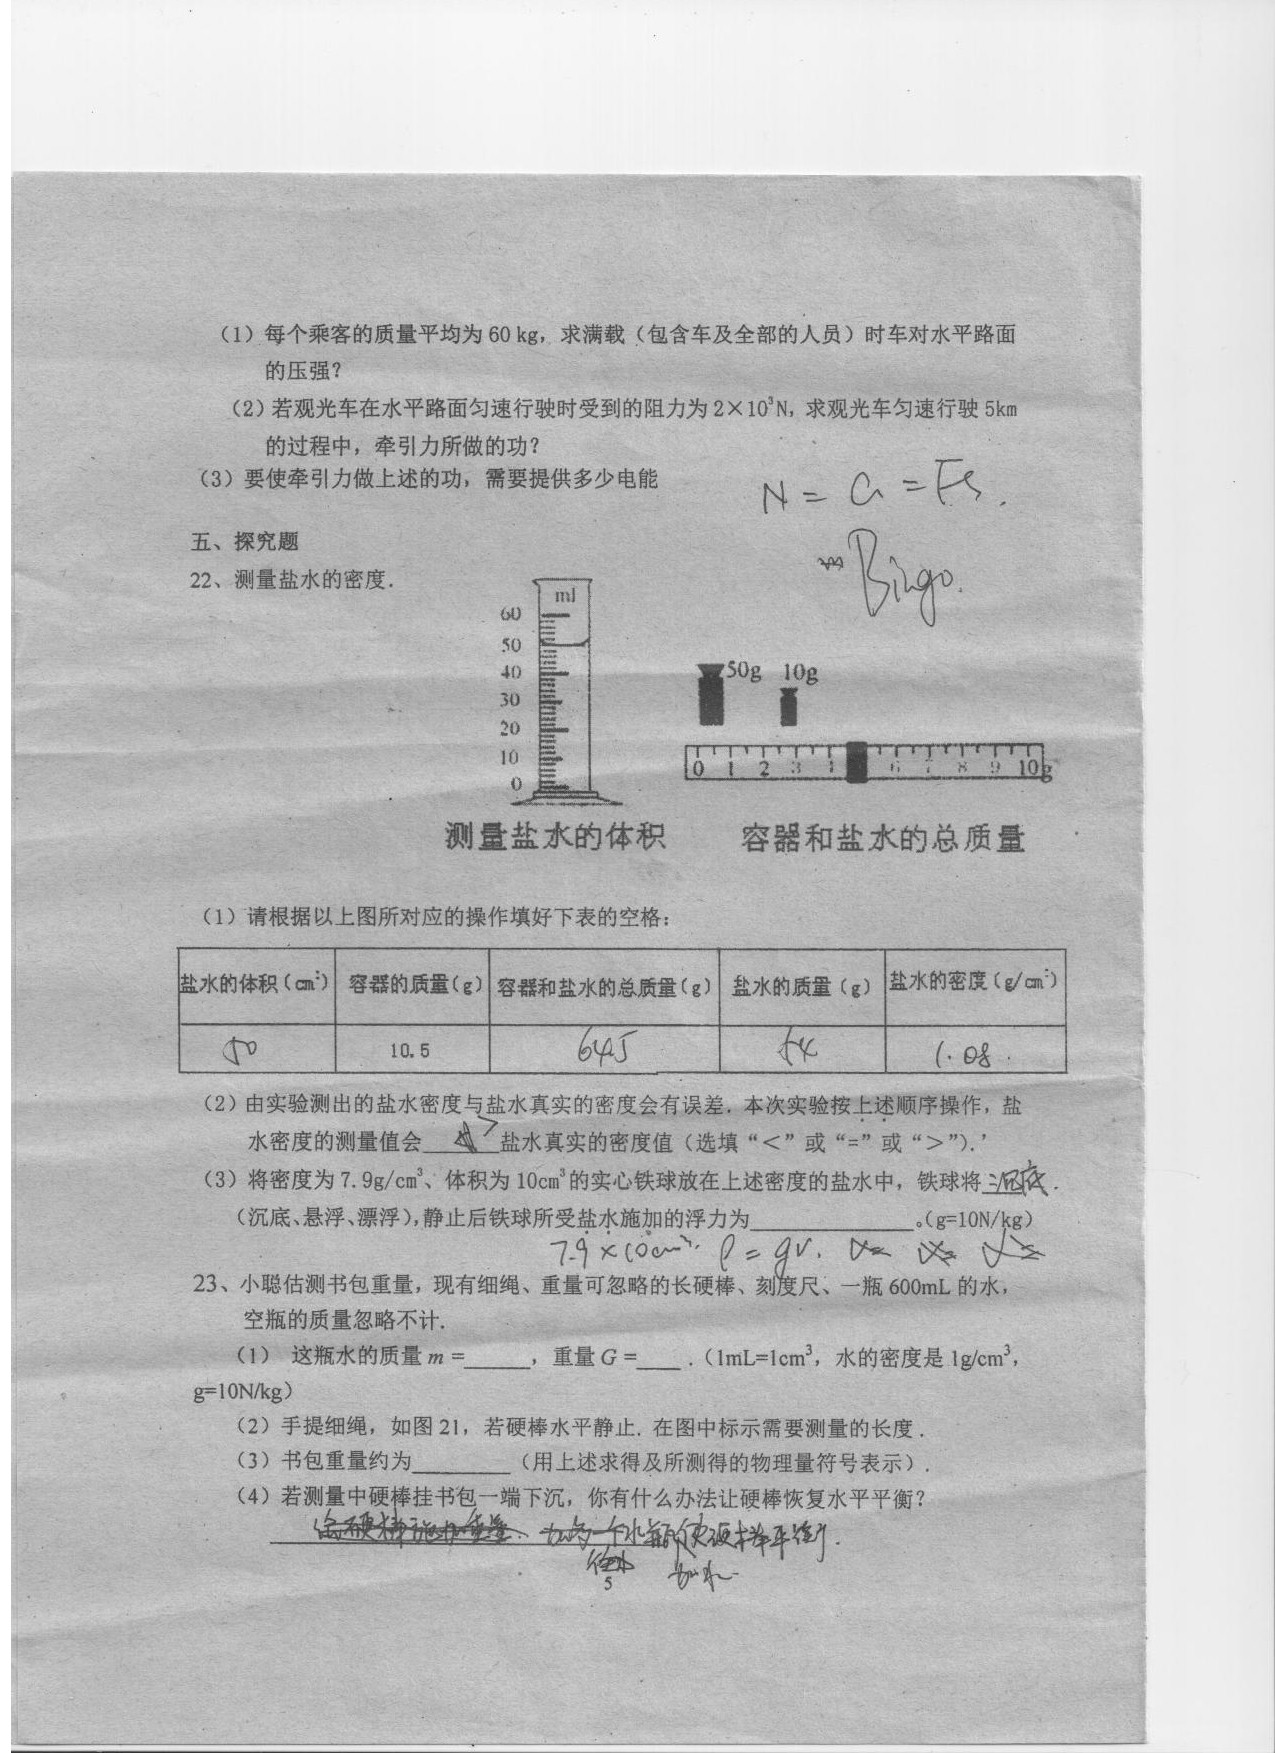 （1）每个乘客的质量平均为 60 kg，求满载（包含车及全部的人员）时车对水平路面
的压强？
（2）若观光车在水平路面匀速行驶时受到的阻力为 2×10³N，求观光车匀速行驶 5km
的过程中，牵引力所做的功？
（3）要使牵引力做上述的功，需要提供多少电能
N = G = Fs.
五、探究题
Bingo.
22、测量盐水的密度.
ml
60
50
40
30
20
10
0
50g 10g
0 1 2 3 4 6 7 8 9 10g
测量盐水的体积 容器和盐水的总质量
（1）请根据以上图所对应的操作填好下表的空格：
盐水的体积(cm³) 容器的质量(g) 容器和盐水的总质量(g) 盐水的质量(g) 盐水的密度(g/cm³)
50 10.5 64.5 54 1.08.
（2）由实验测出的盐水密度与盐水真实的密度会有误差. 本次实验按上述顺序操作，盐
水密度的测量值会 > 盐水真实的密度值（选填“＜”或“=”或“＞”）.
（3）将密度为 7.9g/cm³、体积为 10cm³的实心铁球放在上述密度的盐水中，铁球将 沉底.
（沉底、悬浮、漂浮），静止后铁球所受盐水施加的浮力为____________。（g=10N/kg）
7.9×10cm³. ρ = gv.
23、小聪估测书包重量，现有细绳、重量可忽略的长硬棒、刻度尺、一瓶 600mL 的水，
空瓶的质量忽略不计.
（1） 这瓶水的质量 m =______，重量 G =____.（1mL=1cm³，水的密度是 1g/cm³，
g=10N/kg）
（2）手提细绳，如图 21，若硬棒水平静止. 在图中标示需要测量的长度.
（3）书包重量约为________（用上述求得及所测得的物理量符号表示）.
（4）若测量中硬棒挂书包一端下沉，你有什么办法让硬棒恢复水平平衡？
使硬棒平衡.
加水
5